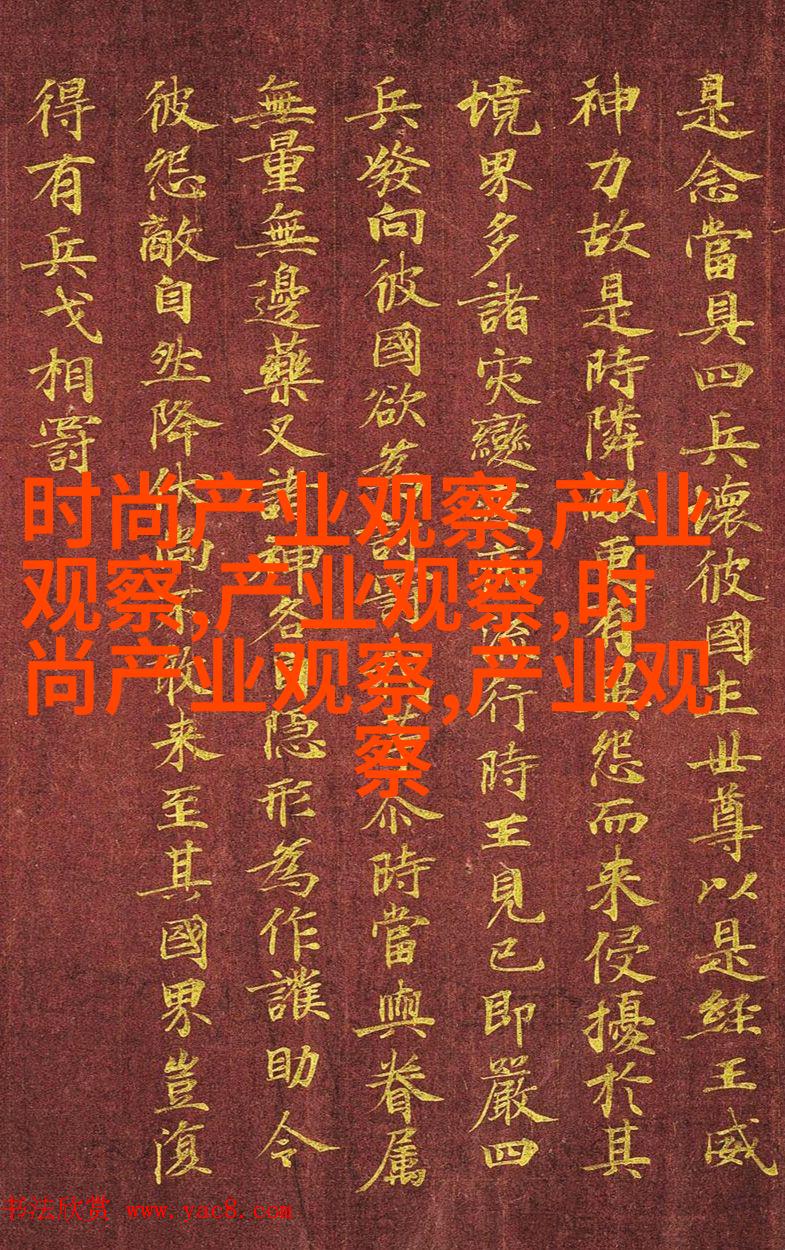 是念當具四兵壞彼國土世尊以是經王威
神力故是時隣敵更有異怨而来侵擾於其
境界多諸灾變疫流行時王見已即嚴四
兵發向彼國欲為討罰尒時當與眷属
無量無邊藥叉諸神各自隠形為作護助令
彼怨敵自然降伏尚不敢来至其國界豈復
得有兵戈相罸
时尚产业观察,产业
观察,产业观察,时
尚产业观察,产业观
察
书法欣赏 www.yac8.com